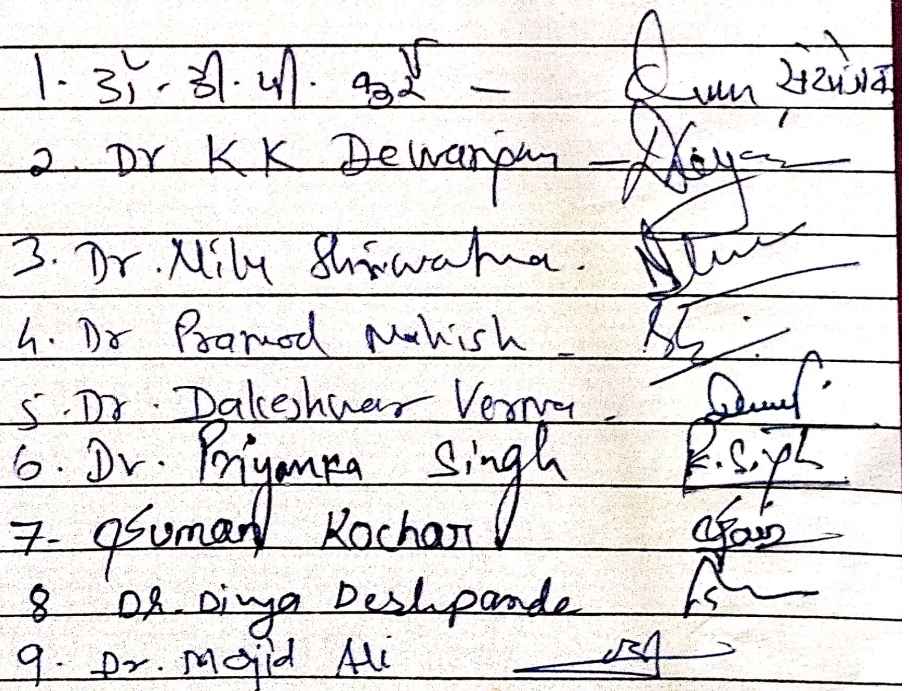 1. डॉ. डी. पी. कुर्रे - संयोजक
2. Dr K K Dewangan -
3. Dr. Mily Shrivastva.
4. Dr Pramod Mahish -
5. Dr. Dakeshwar Verma -
6. Dr. Priyanka Singh P. Singh
7- Gsuman Kochar
8 DR. Divya Deshpande
9. Dr. Majid Ali